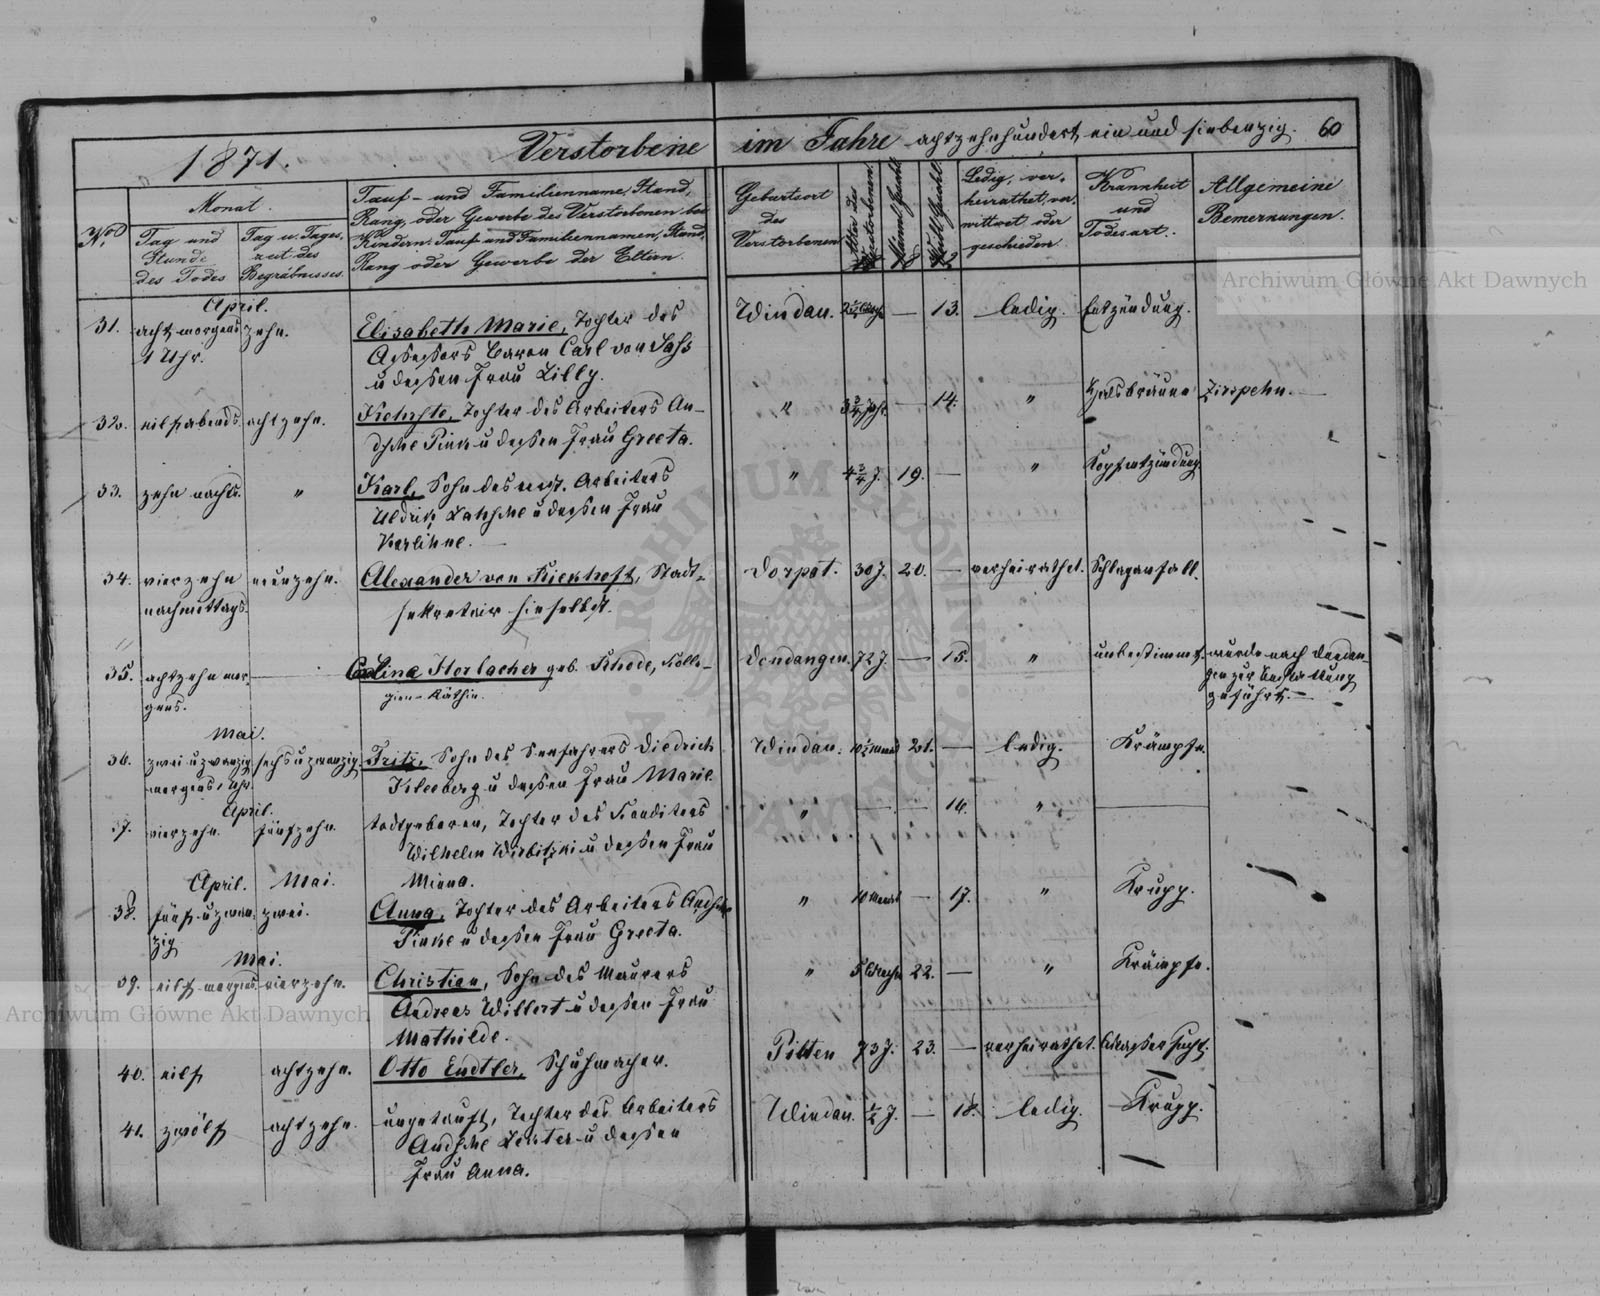 1871.
Verstorbene im Jahre achtzehnhundert ein und siebenzig. 60
No
Monat.
Tag und
Stunde
des Todes
Tag u. Tages-
zeit des
Begräbnisses.
Tauf- und Familienname, Stand,
Rang, oder Gewerbe des Verstorbenen bei
Kindern: Tauf und Familiennamen, Stand,
Rang oder Gewerbe der Eltern.
Geburtsort
des
Verstorbenen
Alter des
Verstorbenen.
Männl. Geschl.
Weibl. Geschl.
Ledig, ver-
heirathet, ver-
wittwet oder
geschieden
Krannheit
und
Todesart.
Allgemeine
Bemerkungen.
April.
31. acht morgens zehn. Elisabeth Marie, Tochter des Windau. — 13. ledig. Entzündung.
1 Uhr. Assessors Baron Carl von Sass
u dessen Frau Lilly.
32. eilf abends. achtzehn. Tochter des Arbeiters An- " 3 3/4 Jahr — 14. " Halsbräune
Pinke u dessen Frau Greeta.
33. zehn nachts. " Karl, Sohn des Arbeiters " 4 3/4 J. 19. — " Kopfentzündung
u dessen Frau
Karlihne. —
34. vierzehn neunzehn. Alexander von Kiekhoff, Stadt- Dorpat. 30 J. 20. — verheirathet. Schlaganfall.
nachmittags. sekretair hieselbst.
35. achtzehn mor- — Horlacher geb. Rhode, Kolle- Dondangen. 72 J. — 15. " unbestimmt. wurde nach Dondan-
gens. gien-Räthin. gen zur
geführt. —
Mai.
36. zwei u zwanzig sechs u zwanzig. Fritz, Sohn des Seefahrers Diedrich Windau. 21. — ledig. Krämpfe.
morgens 1 Uhr. Kleeberg u dessen Frau Marie
April.
37. vierzehn. fünfzehn. todtgeboren, Tochter des Konditers " — — 16. " —
Wilhelm u dessen Frau
Minna.
April. Mai.
38. fünf u zwan- zwei. Anna, Tochter des Arbeiters " 10 Monat — 17. " Krupp.
zig Pinke u dessen Frau Greeta.
Mai.
39. eilf morgens vierzehn. Christian, Sohn des Maurers " 22. — " Krämpfe.
Andreas Willert u dessen Frau
Mathilde.
40. eilf achtzehn. Otto Endtler, Schuhmacher. Pilten 73 J. 23. — verheirathet. Wassersucht.
41. zwölf achtzehn. ungetauft, Tochter des Arbeiters Windau. 1/2 J. — 18. ledig. Krupp.
u dessen
Frau Anna.
Archiwum Główne Akt Dawnych
Archiwum Główne Akt Dawnych
ARCHIWUM GŁÓWNE AKT DAWNYCH